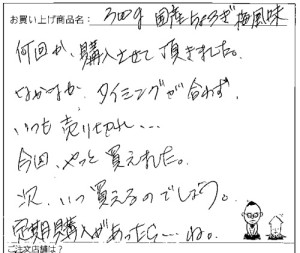 お買い上げ商品名： 300g 国産ちょろぎ梅風味
何回か、購入させて頂きました。
なかなか、タイミングが合わず、
いつも 売り切れ…
今回、やっと 買えました。
次、いつ 買えるのでしょう。
定期購入があったら… ね。
ご注文店舗は？